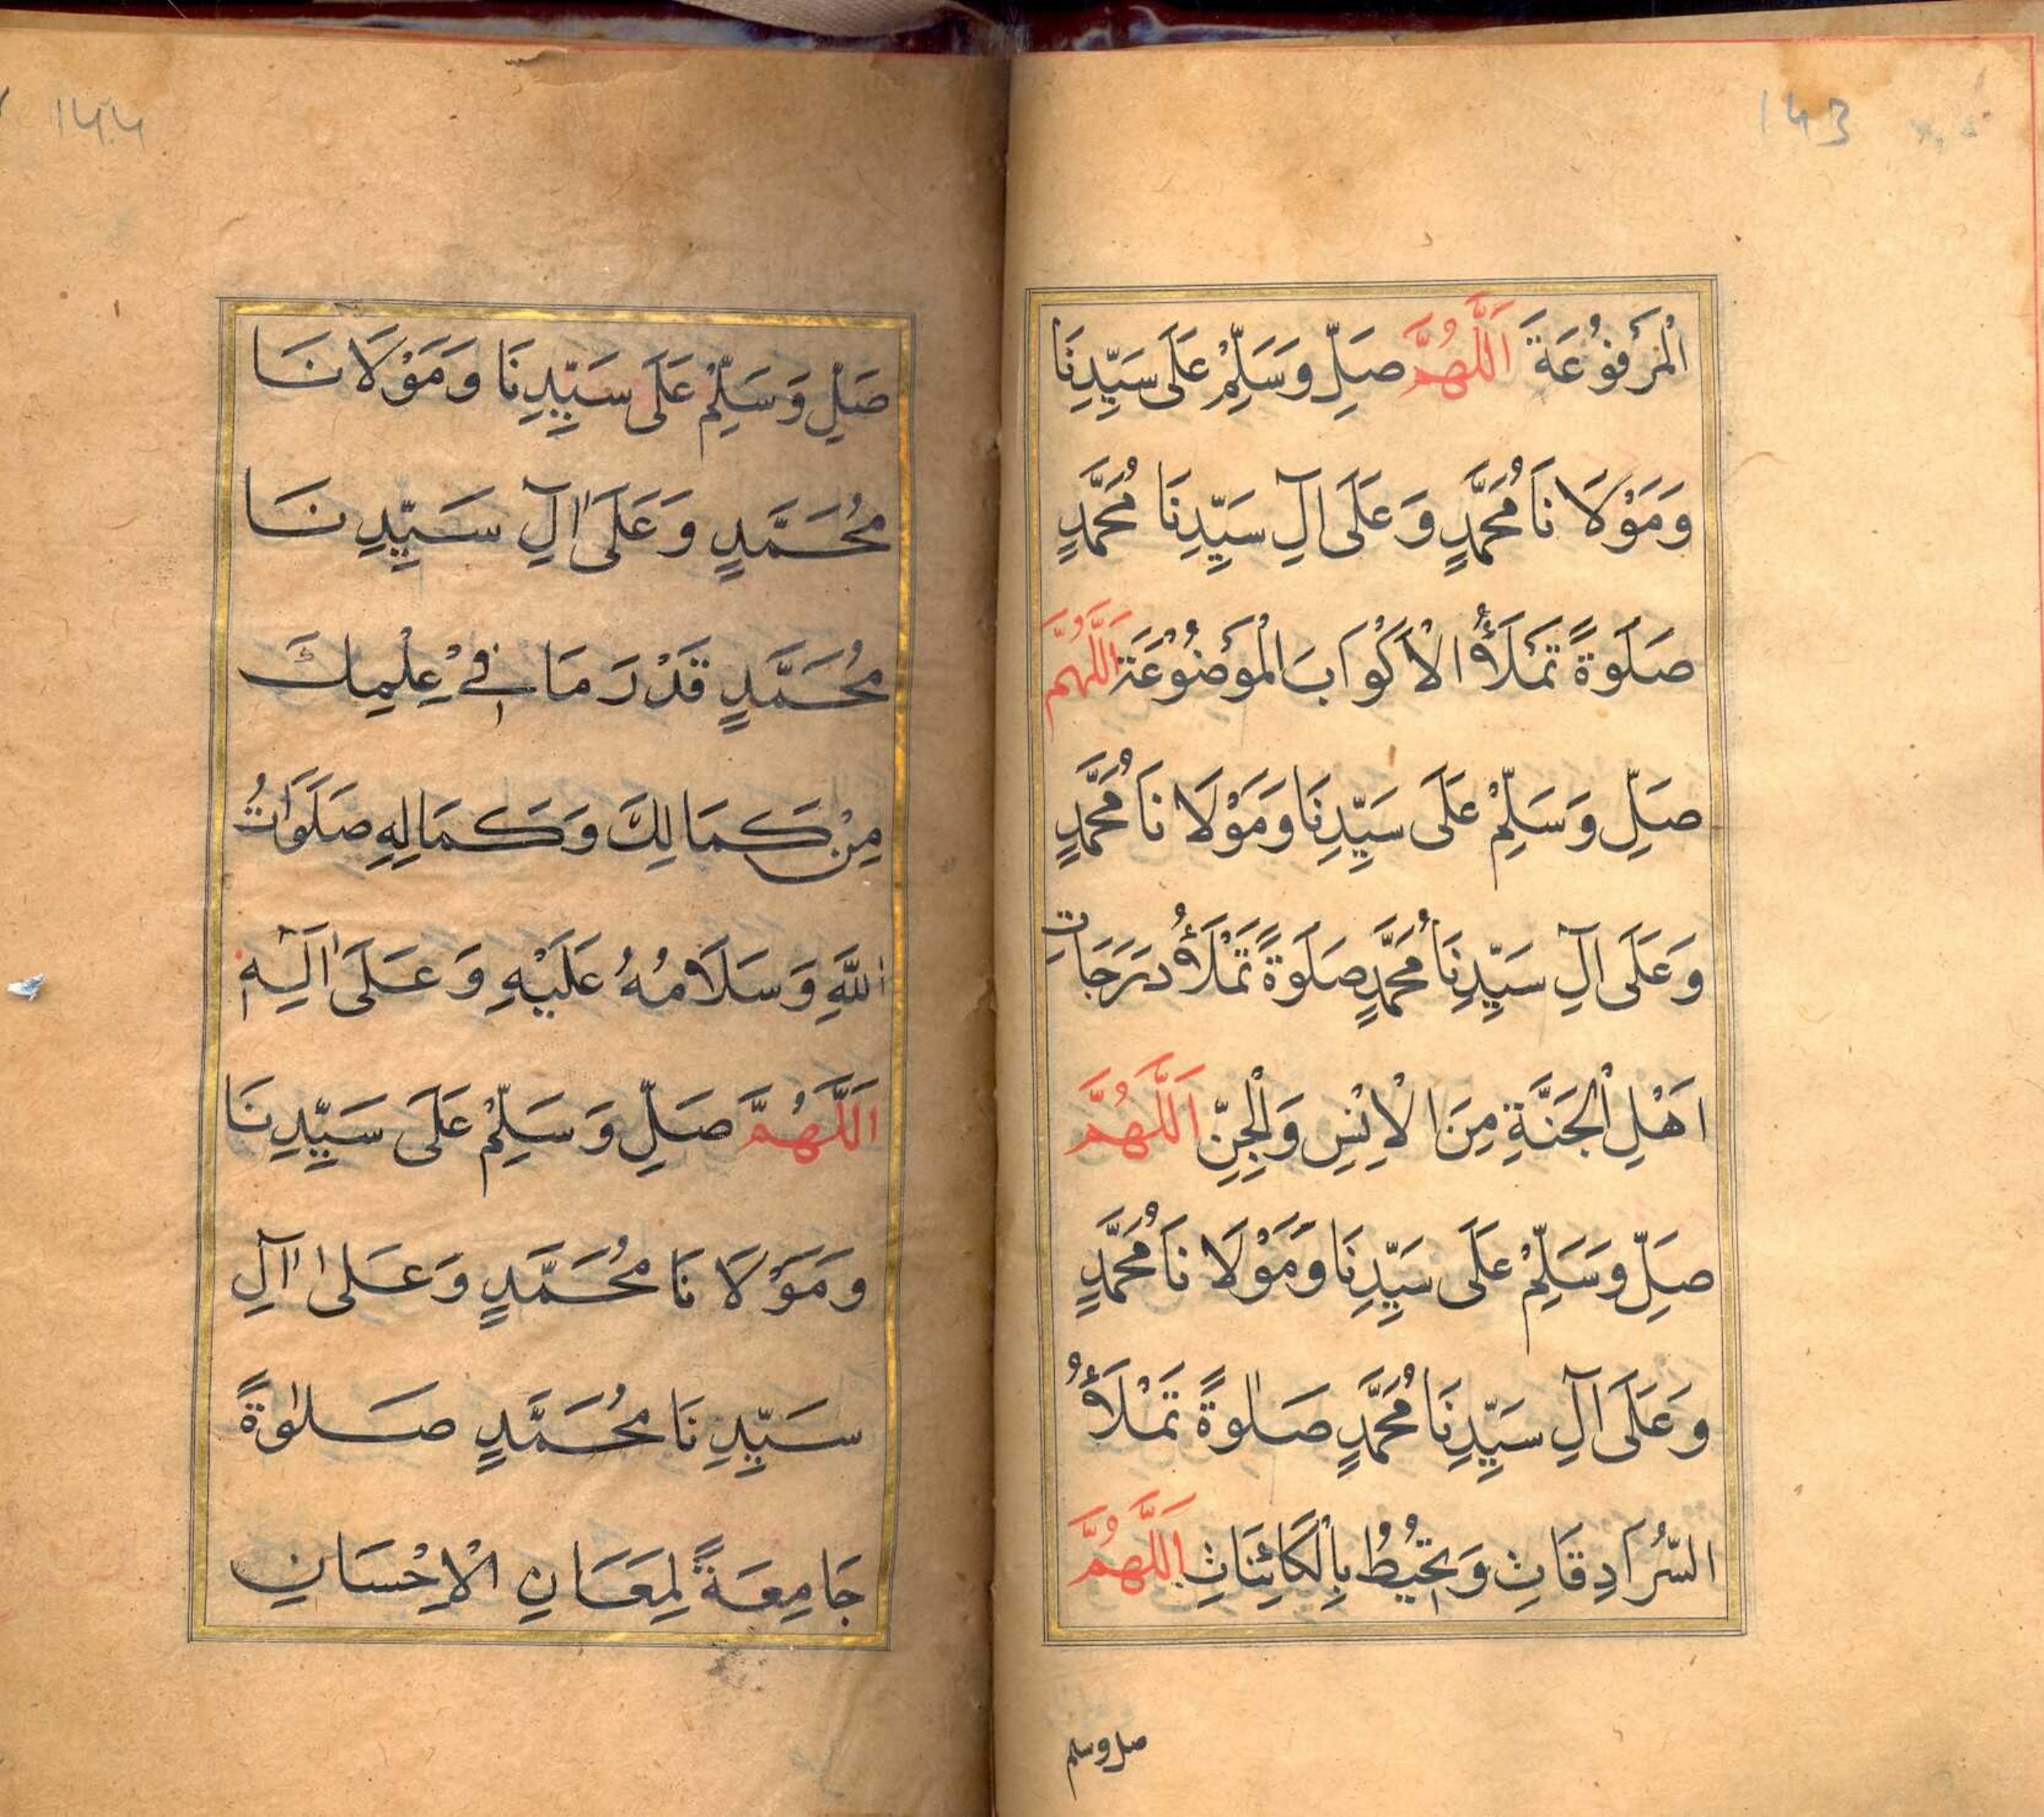 143
الْمَرْفُوْعَةَ اَللّٰهُمَّ صَلِّ وَسَلِّمْ عَلَى سَيِّدِنَا
وَمَوْلَا نَا مُحَمَّدٍ وَ عَلَى آلِ سَيِّدِنَا مُحَمَّدٍ
صَلَوةً تَمْلَأُ الْاَكْوَابَ الْمَوْضُوْعَةَ اَللّٰهُمَّ
صَلِّ وَسَلِّمْ عَلَى سَيِّدِنَا وَمَوْلَا نَا مُحَمَّدٍ
وَعَلَى آلِ سَيِّدِنَا مُحَمَّدٍ صَلَوةً تَمْلَأُ دَرَجَاتِ
اَهْلِ الْجَنَّةِ مِنَ الْاِنْسِ وَالْجِنِّ اَللّٰهُمَّ
صَلِّ وَسَلِّمْ عَلَى سَيِّدِنَا وَمَوْلَا نَا مُحَمَّدٍ
وَعَلَى آلِ سَيِّدِنَا مُحَمَّدٍ صَلٰوةً تَمْلَأُ
السُّرَادِقَاتِ وَتُحِيْطُ بِالْكَائِنَاتِ اَللّٰهُمَّ
صل وسلم
١٤٤
صَلِّ وَسَلِّمْ عَلَى سَيِّدِنَا وَمَوْلَانَا
مُحَمَّدٍ وَعَلَى اٰلِ سَيِّدِنَا
مُحَمَّدٍ قَدْرَ مَا فِيْ عِلْمِكَ
مِنْ كَمَالِكَ وَكَمَالِهِ صَلَوَاتُ
اللّٰهِ وَسَلَامُهُ عَلَيْهِ وَعَلَى اٰلِهِ
اَللّٰهُمَّ صَلِّ وَسَلِّمْ عَلَى سَيِّدِنَا
وَمَوْلَا نَا مُحَمَّدٍ وَعَلٰى آلِ
سَيِّدِنَا مُحَمَّدٍ صَلٰوةً
جَامِعَةً لِمَعَانِ الْاِحْسَانِ